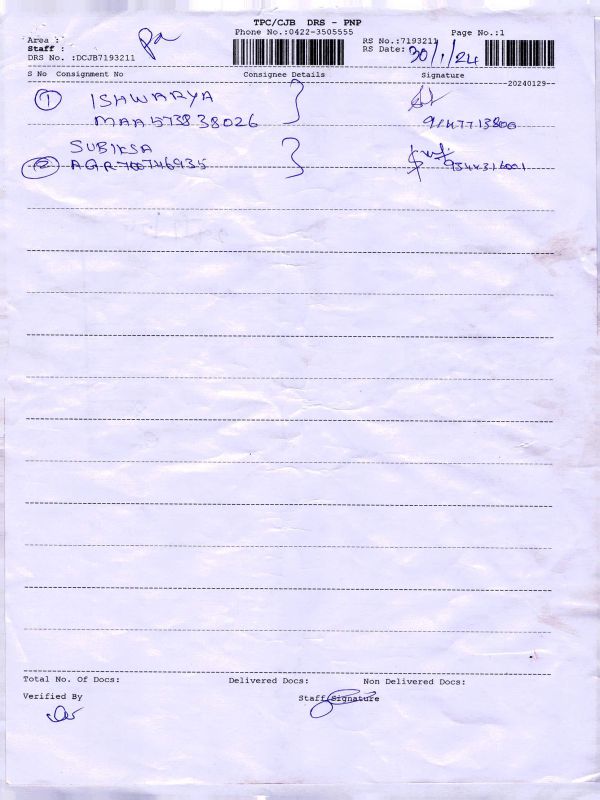 TPC/CJB DRS - PNP
Phone No.:0422-3505555
Page No.:1
Area :
Staff :
DRS No. :DCJB7193211
RS No.:7193211
RS Date: 30/1/24
S No Consignment No Consignee Details Signature
20240129
1 ISHWARYA
MAA573838026
2 SUBIKSA
AGR700746935
Total No. Of Docs: Delivered Docs: Non Delivered Docs:
Verified By Staff Signature